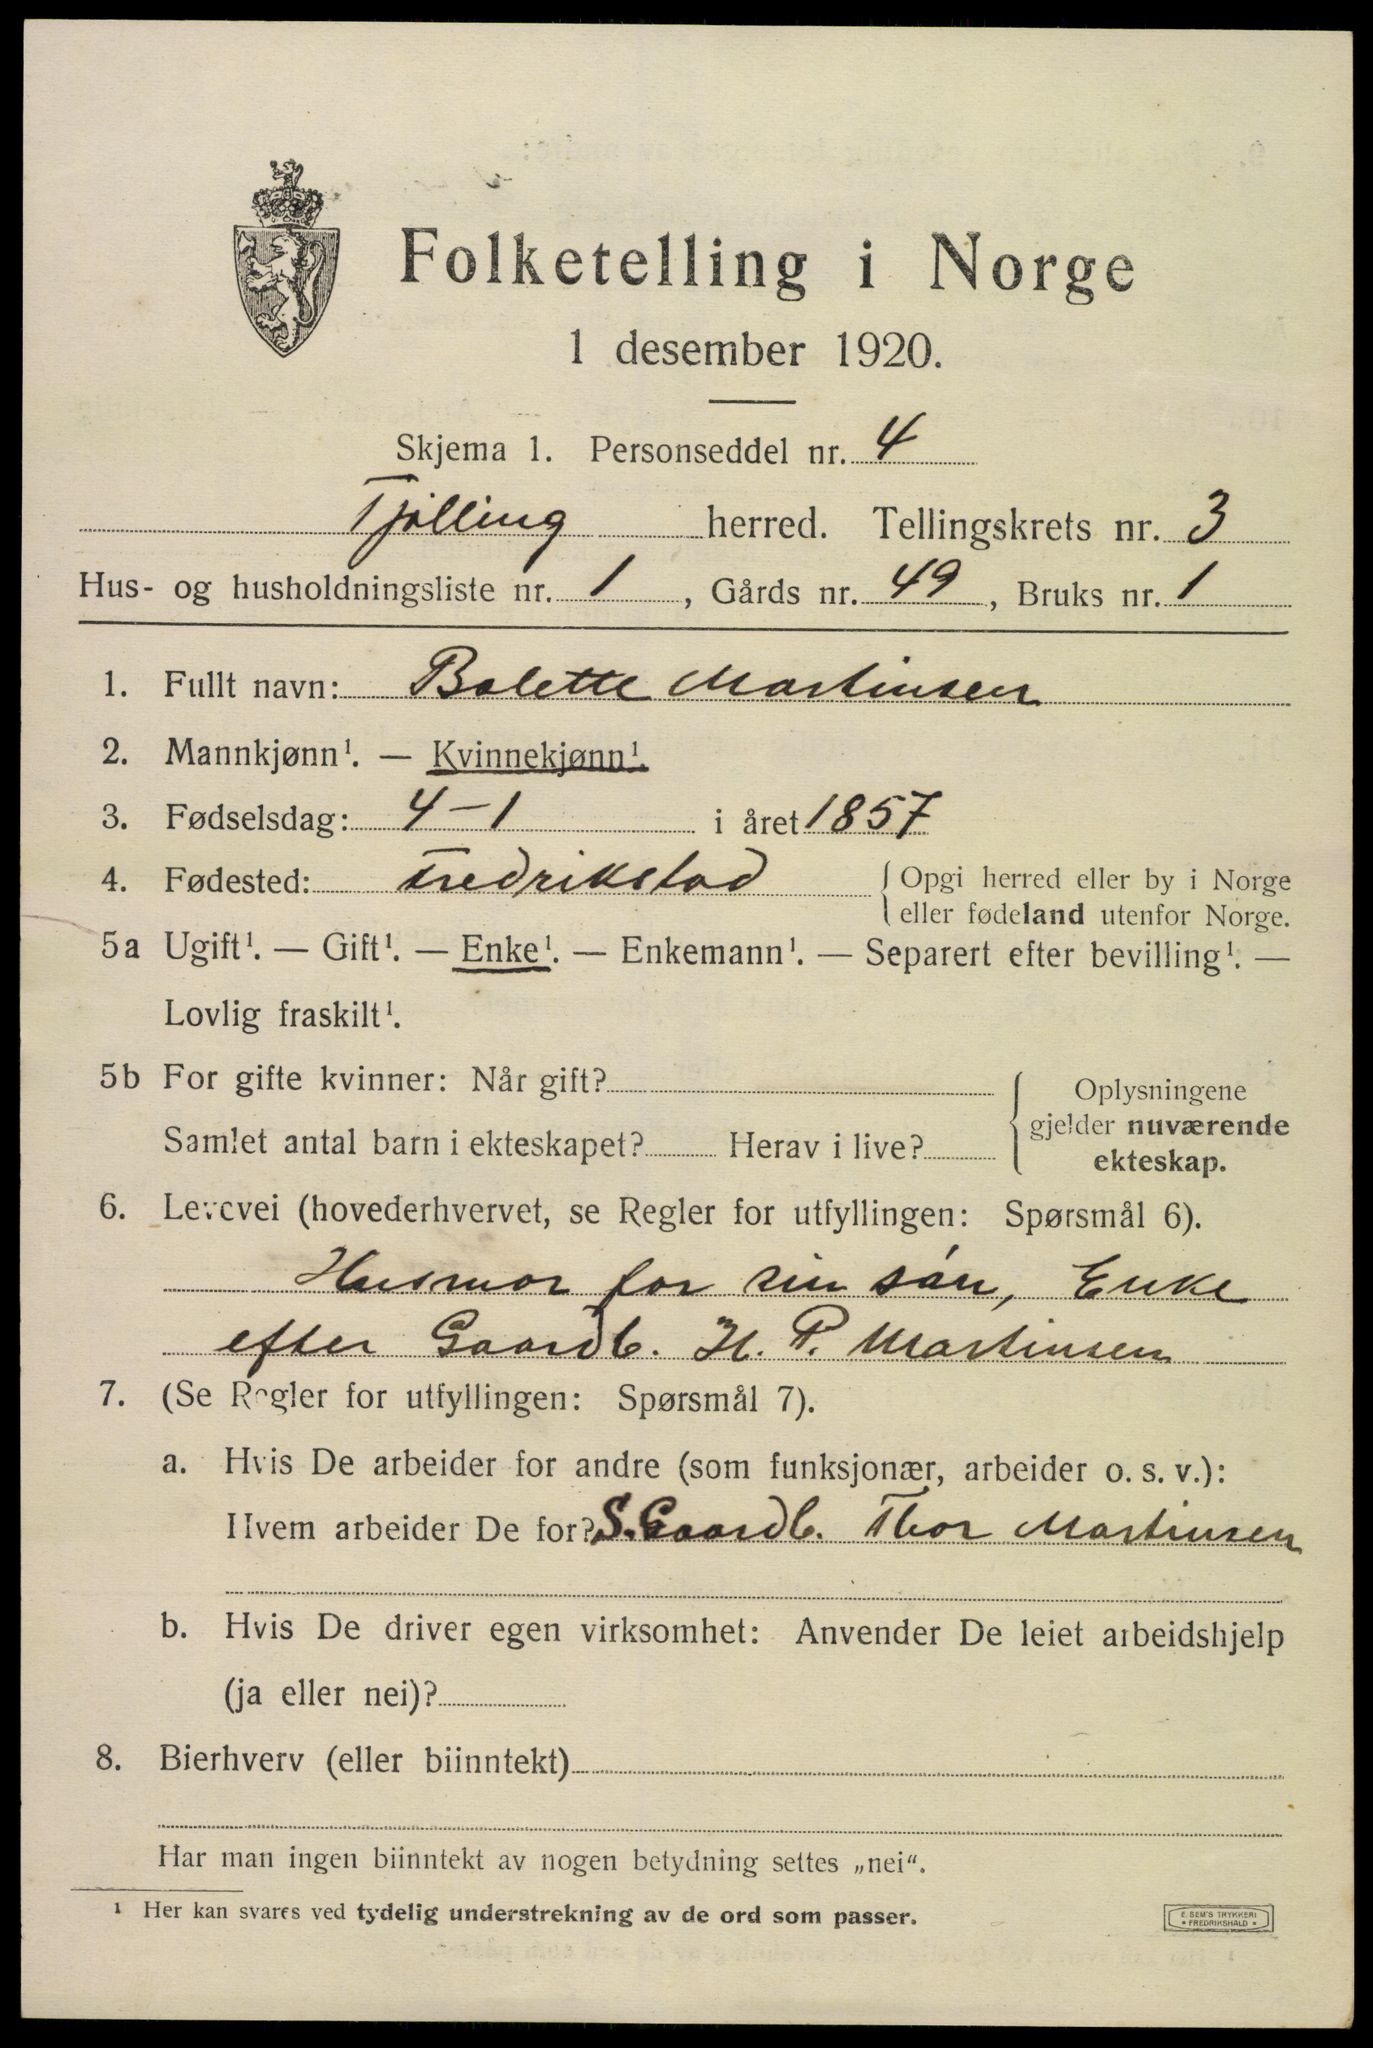 Folketelling i Norge
1 desember 1920.
Skjema 1. Personseddel nr. 4
Tjølling herred. Tellingskrets nr. 3
Hus- og husholdningsliste nr. 1, Gårds nr. 49, Bruks nr. 1
1. Fullt navn: Bolette Martinsen
2. Mannkjønn¹. — Kvinnekjønn¹.
3. Fødselsdag: 4-1 i året 1857
4. Fødested: Fredrikstad { Opgi herred eller by i Norge
eller fødeland utenfor Norge.
5a Ugift¹. — Gift¹. — Enke¹. — Enkemann¹. — Separert efter bevilling¹. —
Lovlig fraskilt¹.
5b For gifte kvinner: Når gift?
Samlet antal barn i ekteskapet? Herav i live?
Oplysningene
gjelder nuværende
ekteskap.
6. Levevei (hovederhvervet, se Regler for utfyllingen: Spørsmål 6).
Husmor for sin søn, Enke
efter Gaardb. H. P. Martinsen
7. (Se Regler for utfyllingen: Spørsmål 7).
a. Hvis De arbeider for andre (som funksjonær, arbeider o. s. v.):
Hvem arbeider De for? S. Gaardb. Thor Martinsen
b. Hvis De driver egen virksomhet: Anvender De leiet arbeidshjelp
(ja eller nei)?
8. Bierhverv (eller biinntekt)
Har man ingen biinntekt av nogen betydning settes „nei“.
¹ Her kan svares ved tydelig understrekning av de ord som passer.
E. SEM'S TRYKKERI
* FREDRIKSHALD *